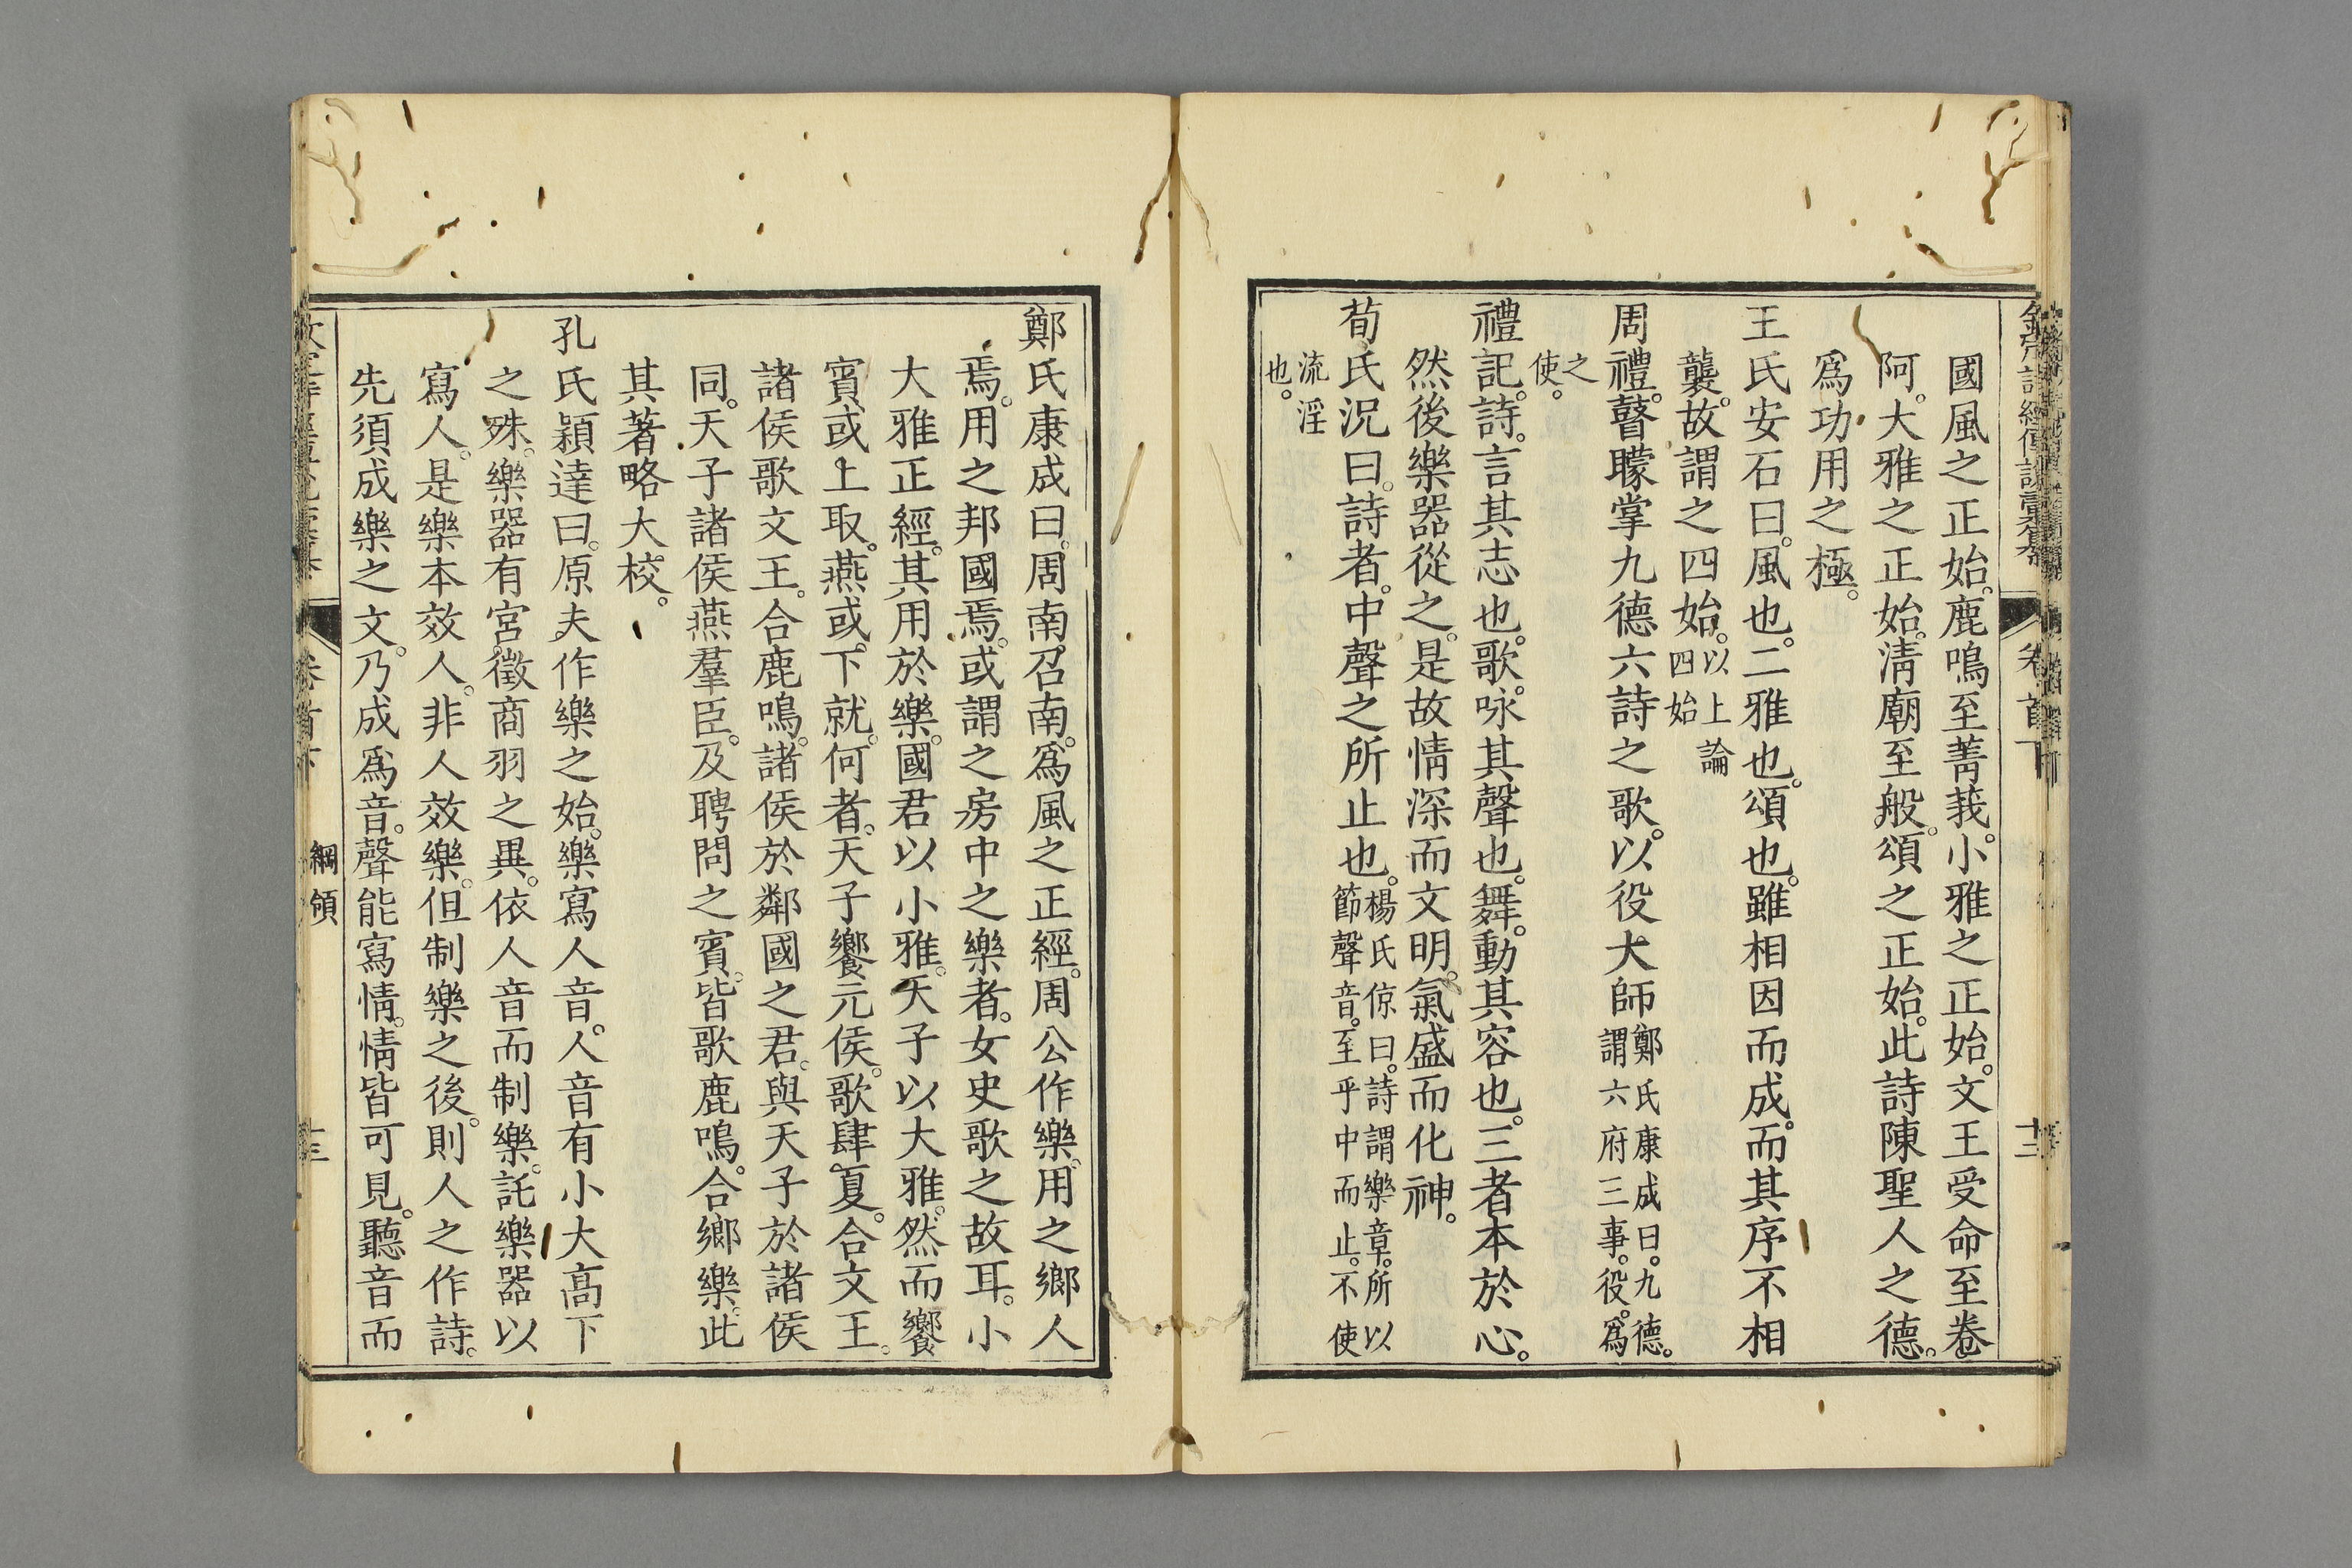 國風之正始。鹿鳴至菁莪。小雅之正始。文王受命至卷
阿。大雅之正始。淸廟至般。頌之正始。此詩陳聖人之德。
爲功用之極。
王氏安石曰。風也。二雅也。頌也。雖相因而成。而其序不相
襲。故謂之四始。以上論四始
周禮。瞽矇掌九德六詩之歌。以役大師鄭氏康成曰。九德。謂六府三事。役。爲
之使。
禮記。詩。言其志也。歌。咏其聲也。舞。動其容也。三者本於心。
然後樂器從之。是故情深而文明。氣盛而化神。
荀氏況曰。詩者。中聲之所止也。楊氏倞曰。詩謂樂章。所以節聲音。至乎中而止。不使
流淫也。
卷首下
十三
鄭氏康成曰。周南。召南。爲風之正經。周公作樂。用之鄉人
焉。用之邦國焉。或謂之房中之樂者。女史歌之故耳。小
大雅正經。其用於樂。國君以小雅。天子以大雅。然而饗
賓。或上取。燕。或下就。何者。天子饗元侯。歌肆夏。合文王。
諸侯歌文王。合鹿鳴。諸侯於鄰國之君。與天子於諸侯
同。天子諸侯燕羣臣。及聘問之賓。皆歌鹿鳴。合鄉樂。此
其著略大校。
孔氏穎達曰。原夫作樂之始。樂寫人音。人音有小大高下
之殊。樂器有宮徵商羽之異。依人音而制樂。託樂器以
寫人。是樂本效人。非人效樂。但制樂之後。則人之作詩。
先須成樂之文。乃成爲音。聲能寫情。情皆可見。聽音而
卷首下 綱領
十三